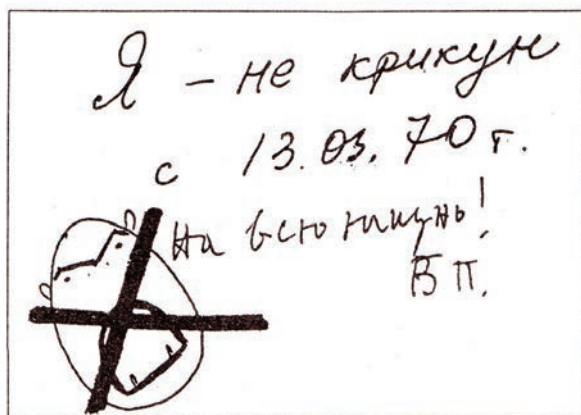 Я – не крикун
с 13.03.70 г.
На всю жизнь!